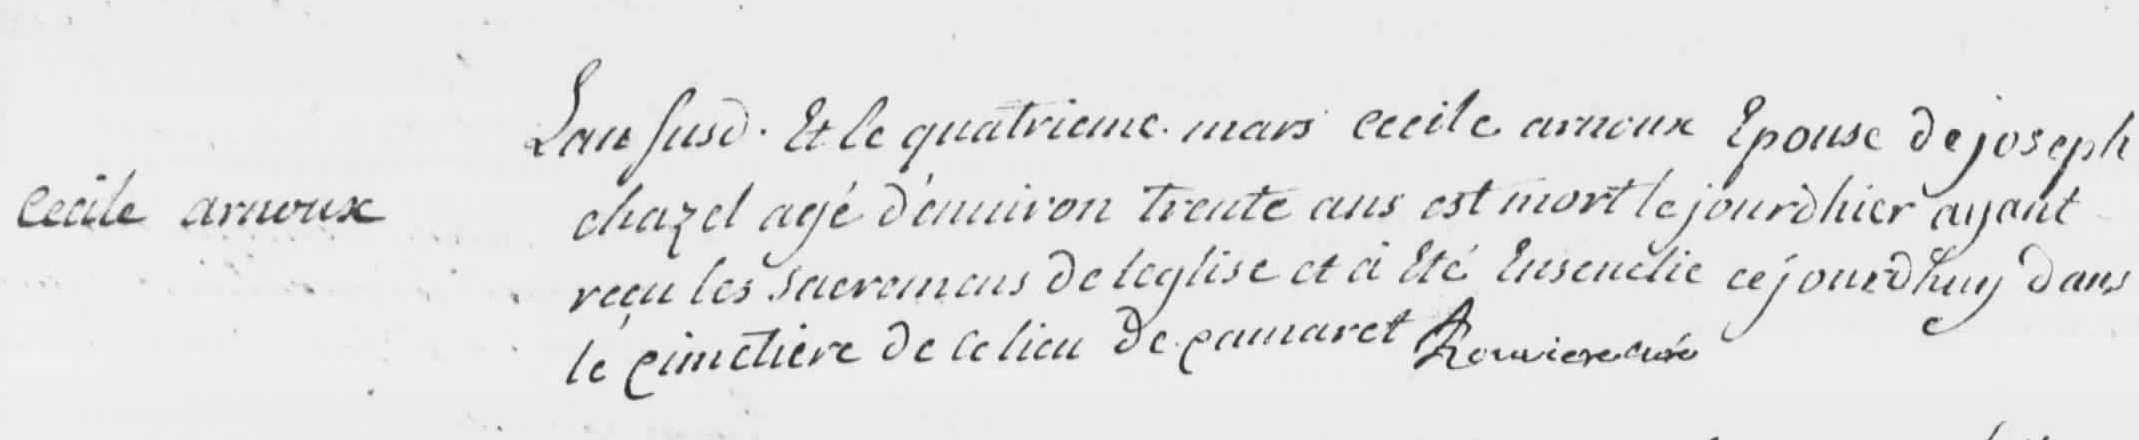 cecile arnoux
Lan susd. Et le quatrieme mars cecile arnoux Epouse de joseph
chazel agé d'enuiron trente ans est mort le jour d'hier ayant
reçu les sacremens de leglise et a Eté Enseuelie ce jourdhuy dans
le cimetiere de ce lieu de camaret Rouviere curé